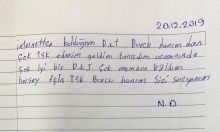 20.12.2019
internetten bulduğum Dkt Burcu hanımdan
Çok tşk ederim geldim tanıdım uzmanında
Çok iyi bir Dkt Çok memnun kaldım
herşey için Tşk Burcu hanım Sizi seviyorum
N.D